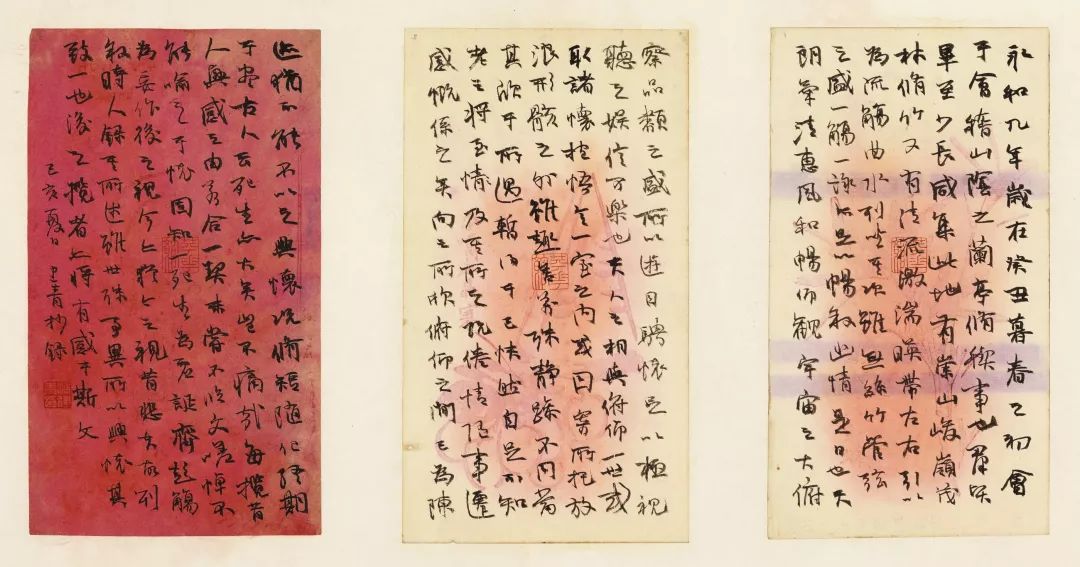 永和九年歲在癸丑暮春之初會
于會稽山陰之蘭亭脩稧事也羣賢
畢至少長咸集此地有崇山峻嶺茂
林脩竹又有清流激湍暎帶左右引以
為流觴曲水列坐其次雖無絲竹管弦
之盛一觴一詠亦足以暢敘幽情是日也天
朗氣清惠風和暢仰觀宇宙之大俯
察品類之盛所以遊目騁懷足以極視
聽之娛信可樂也夫人之相與俯仰一世或
取諸懷抱悟言一室之內或因寄所托放
浪形骸之外雖趣舍萬殊靜躁不同當
其欣于所遇暫得于己快然自足不知
老之將至情及其所之既倦情隨事遷
感慨係之矣向之所欣俯仰之間已為陳
迹猶不能不以之興懷況脩短隨化終期
于盡古人云死生亦大矣豈不痛哉每攬昔
人興感之由若合一契未嘗不臨文嗟悼不
能喻之于懷固知一死生為虛誕齊彭觴
為妄作後之視今亦猶今之視昔悲夫故列
敘時人錄其所述雖世殊事異所以興懷其
致一也後之攬者亦將有感于斯文
己亥夏日 青抄錄